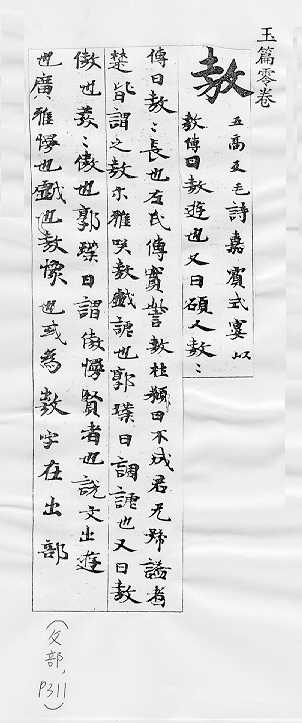 玉篇零卷
敖
五高反毛詩嘉賓式宴以
敖傳曰敖遊也又曰碩人敖〻
傳曰敖〻長也左氏傳實訾敖杜預曰不成君无號謚者
楚皆謂之敖尓雅敖戲謔也郭璞曰調謔也又曰敖
傲也敖〻傲也郭璞曰謂傲慢賢者也說文出遊
也廣雅慢也戲也敖也或為字在出部
(攵部, P311)